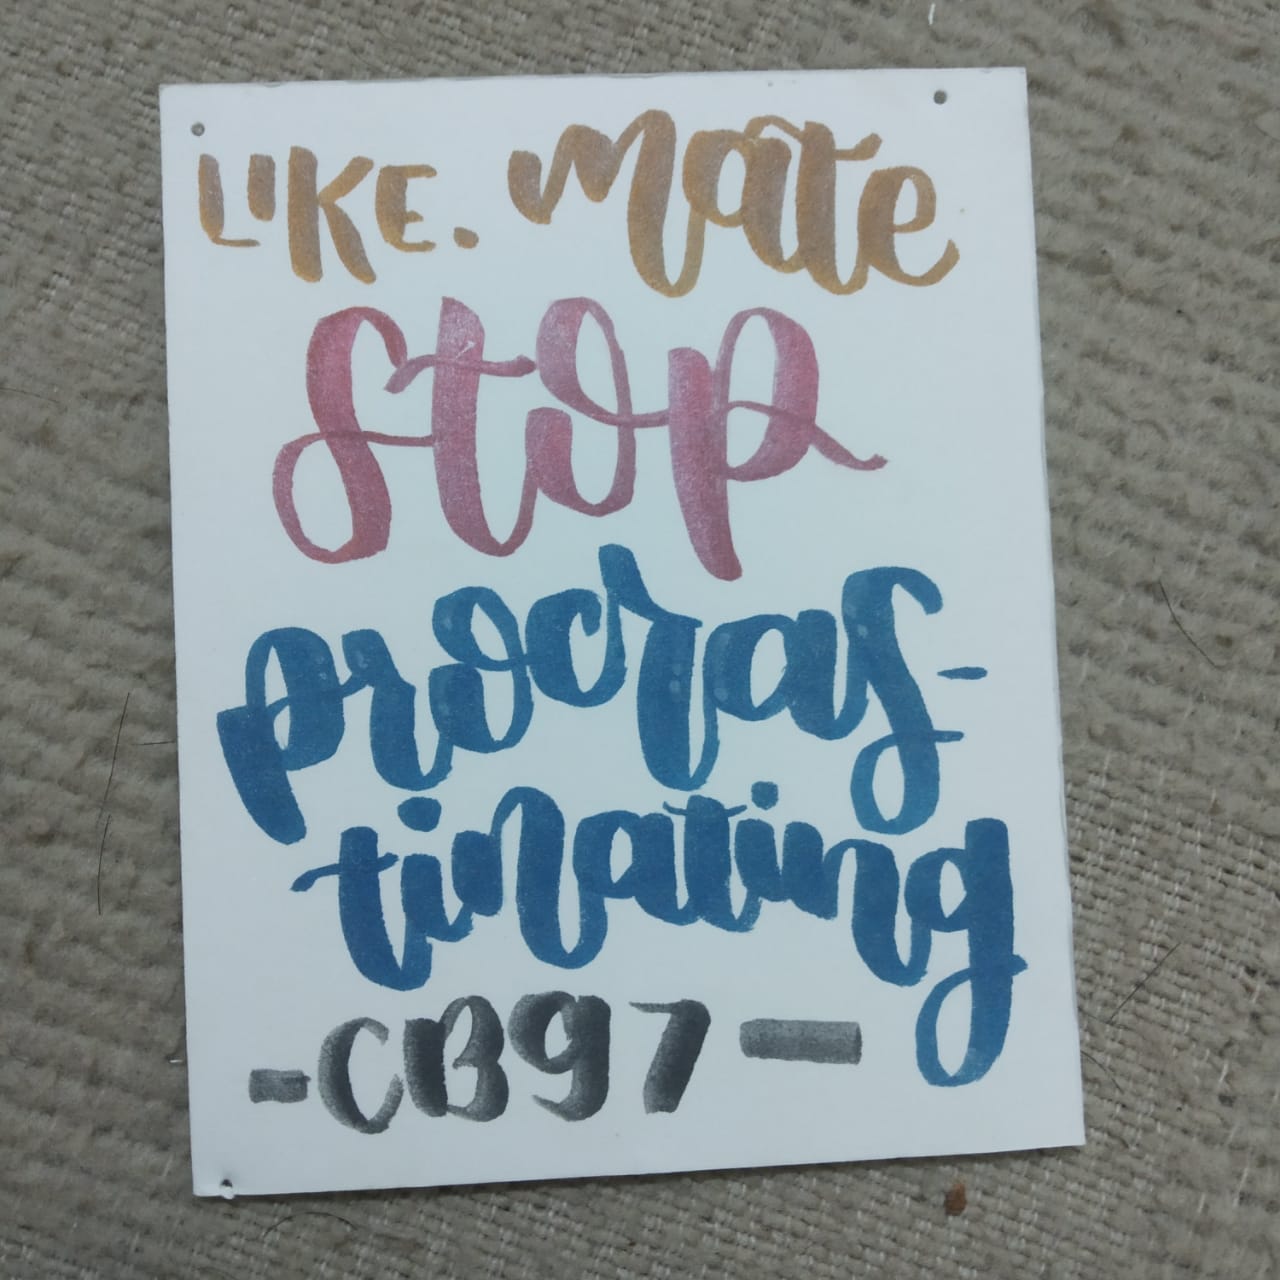 LIKE. mate
stop
procras-
tinating
-CB97-